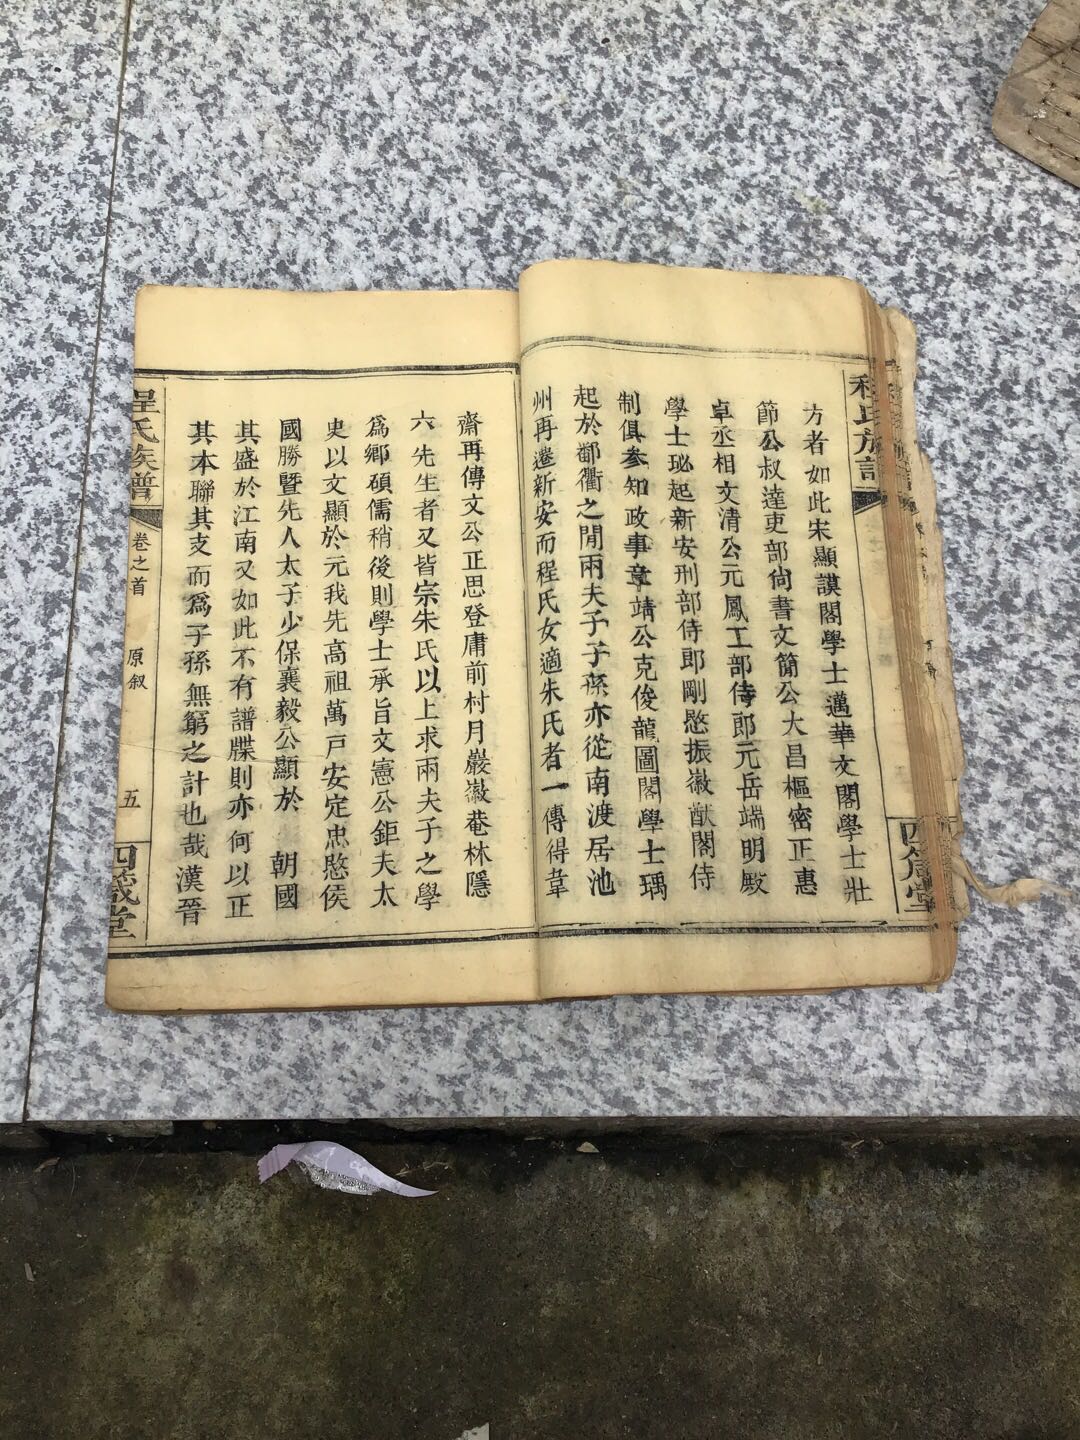 程氏族譜
四箴堂
方者如此宋顯謨閣學士邁華文閣學士壯
節公叔達吏部尙書文簡公大昌樞密正惠
卓丞相文清公元鳳工部侍郎元岳端明殿
學士珌起新安刑部侍郎剛愍振徽猷閣侍
制俱參知政事章靖公克俊龍圖閣學士瑀
起於鄱衢之閒兩夫子子孫亦從南渡居池
州再遷新安而程氏女適朱氏者一傳得韋
齋再傳文公正思登庸前村月巖徽菴林隱
六先生者又皆宗朱氏以上求兩夫子之學
爲鄉碩儒稍後則學士承旨文憲公鉅夫太
史以文顯於元我先高祖萬戸安定忠愍侯
國勝暨先人太子少保襄毅公顯於 朝國
其盛於江南又如此不有譜牒則亦何以正
其本聯其支而爲子孫無窮之計也哉漢晉
程氏族譜
卷之首
原叙
五
四箴堂